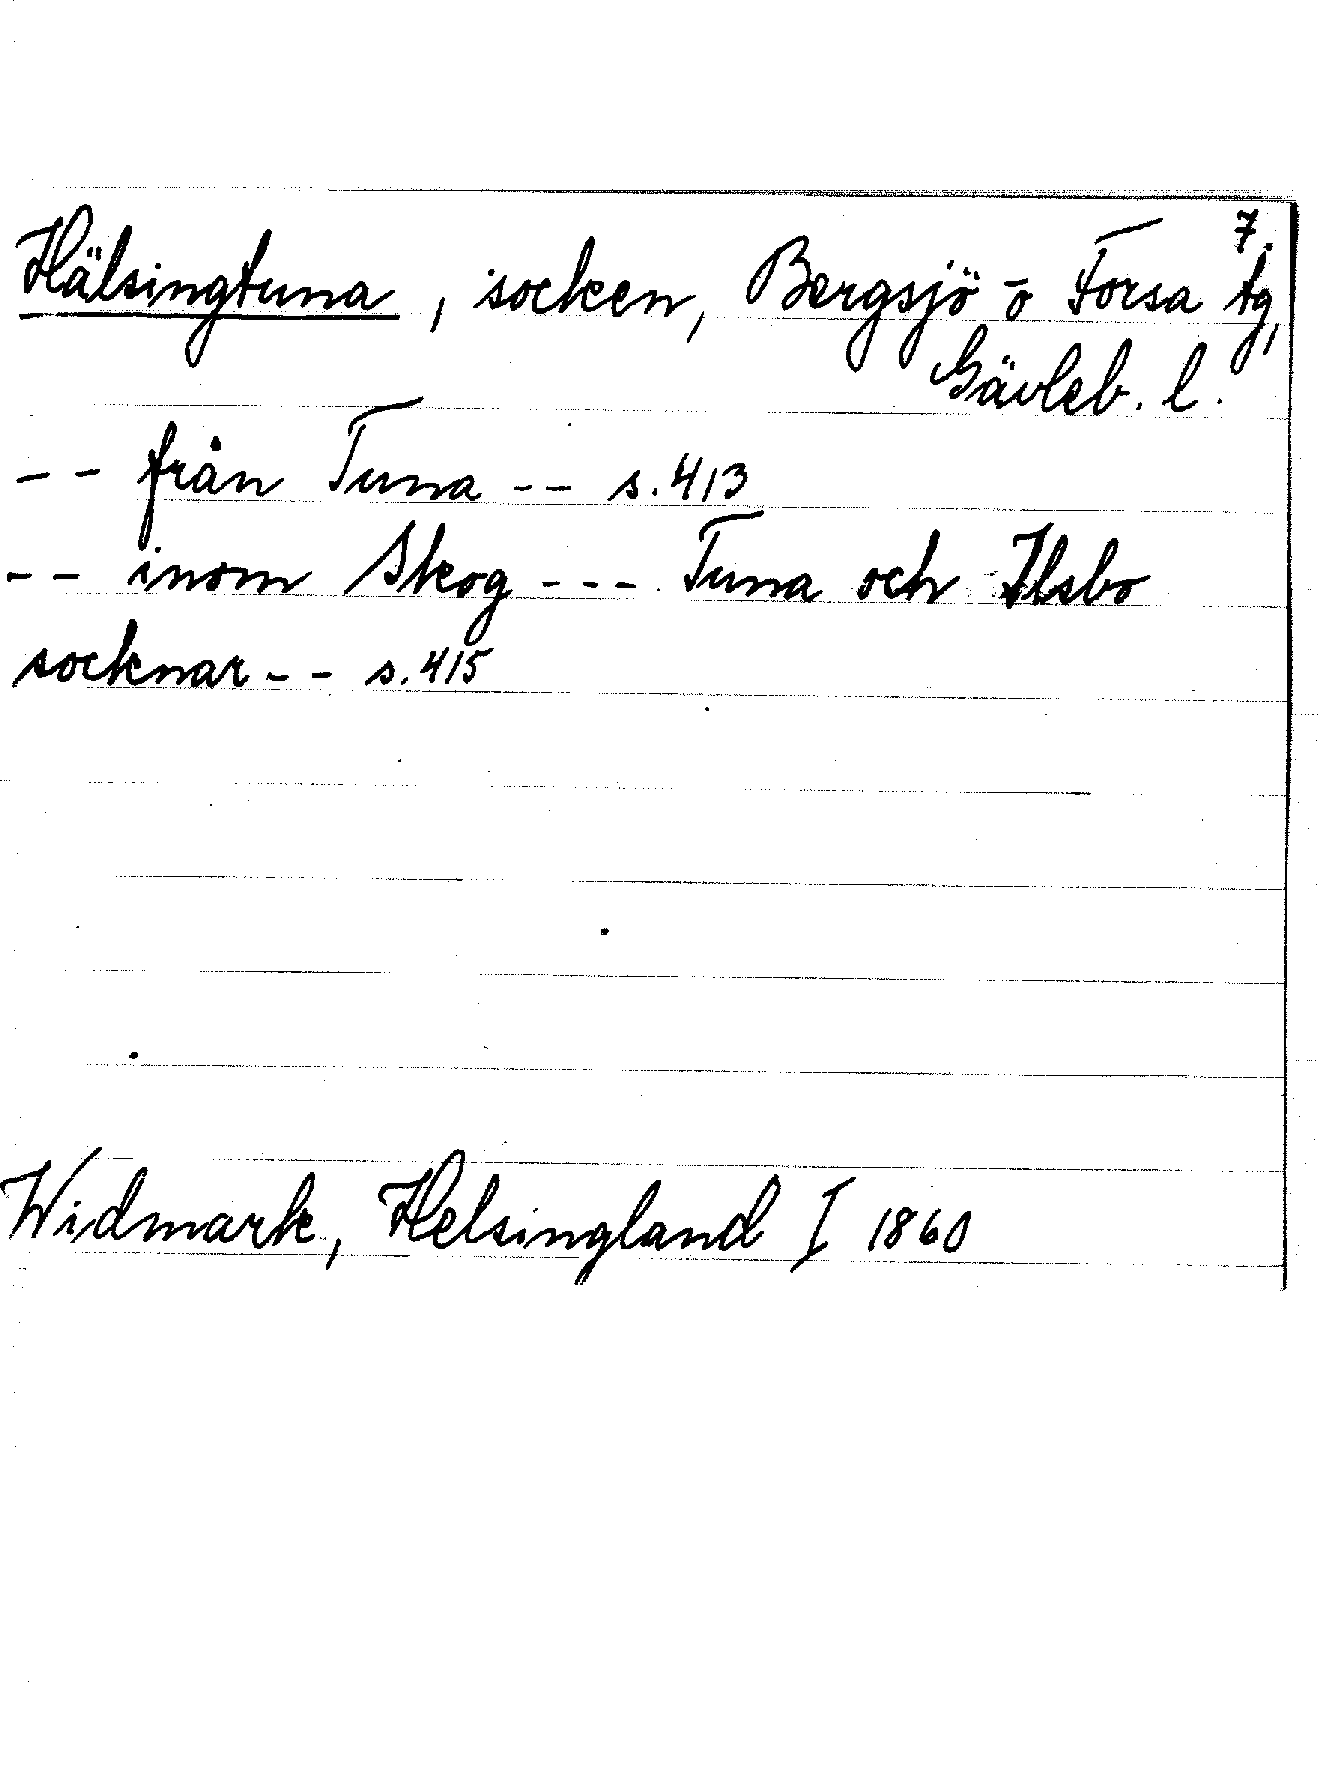 7.
Hälsingtuna, socken, Bergsjö o Forsa tg,
Gävleb. l.
-- från Tuna -- s. 413
-- inom Skog --- Tuna och Ilsbo
socknar -- s. 415
Widmark, Helsingland I 1860